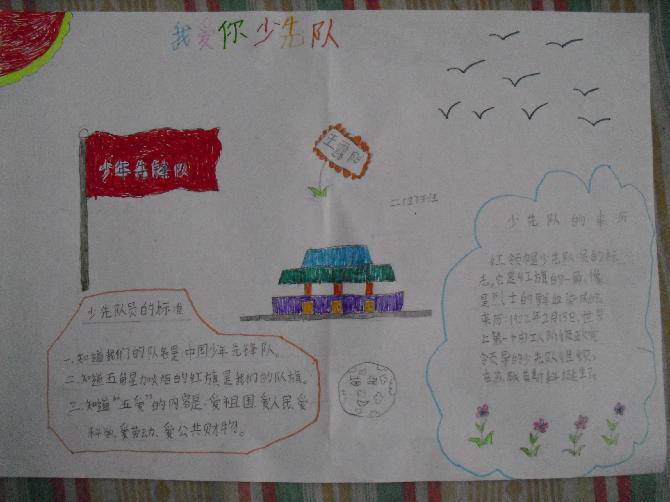 我爱你少先队
少年先锋队
少先队的来历
红领巾是少先队员的标
志。它是红旗的一角,像
是烈士的鲜血染成的。
来历:1922年2月13日,世界
上第一个由工人阶级政党
领导的少先队组织,
在苏联首都诞生了
少先队员的标准
一.知道我们的队名是:中国少年先锋队。
二.知道五角星加火炬的红旗是我们的队旗。
三.知道“五爱”的内容是:爱祖国、爱人民、爱
科学、爱劳动、爱公共财物。